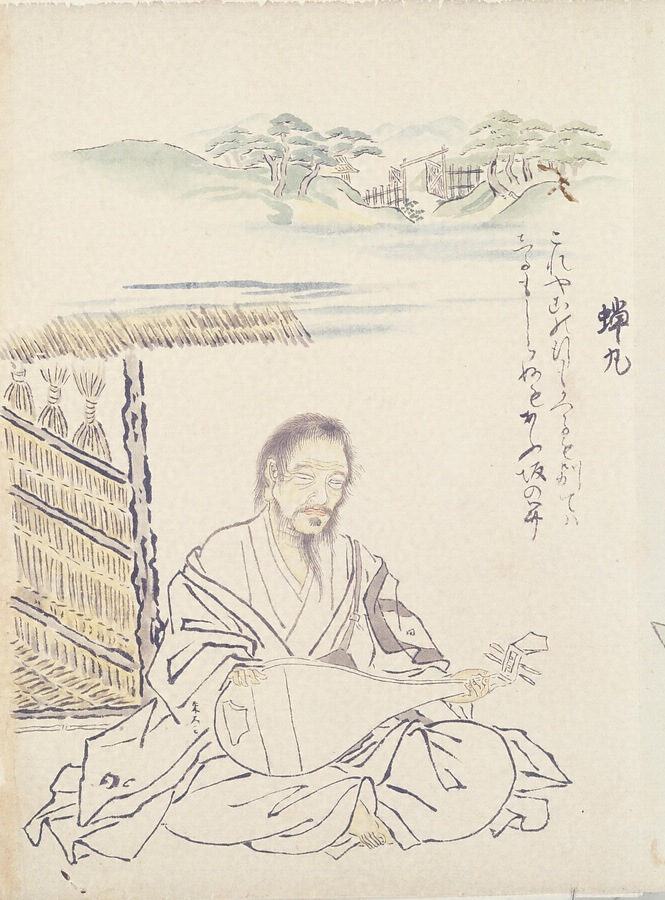 蟬丸
これやこの行もかへるも別ては
しるもしらぬもあふ坂の関